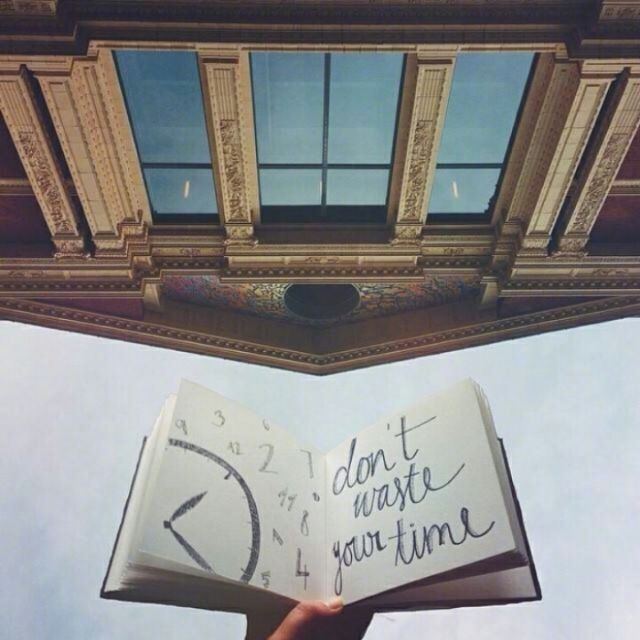 9 3
12 2 7
8
5 4
don't
waste
your time